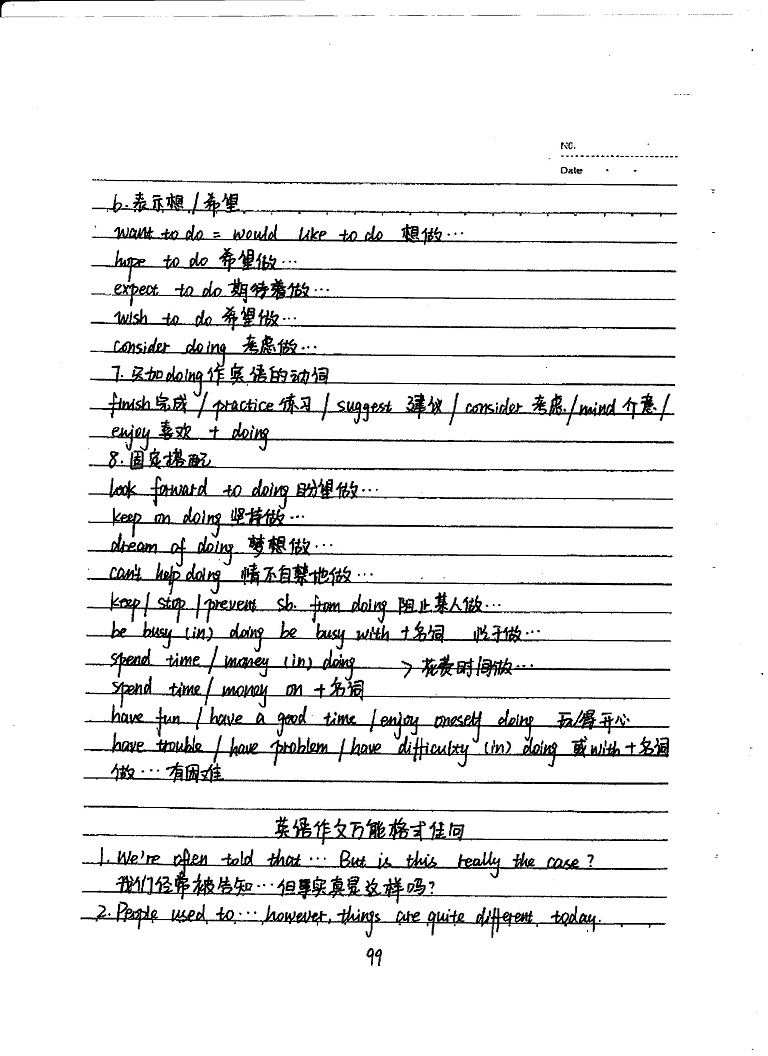 No.
Date
6.表示想/希望
want to do = would like to do 想做…
hope to do 希望做…
expect to do 期待着做…
wish to do 希望做…
consider doing 考虑做…
7.只加doing作宾语的动词
finish完成/practice练习/suggest 建议/consider 考虑/mind介意/
enjoy喜欢 + doing
8.固定搭配
look forward to doing 盼望做…
keep on doing 坚持做…
dream of doing 梦想做…
can't help doing 情不自禁地做…
keep/stop/prevent sb. from doing 阻止某人做…
be busy (in) doing be busy with +名词 忙于做…
spend time/money (in) doing > 花费时间做…
spend time/money on +名词
have fun/have a good time/enjoy oneself doing 玩得开心
have trouble/have problem/have difficulty (in) doing 或with+名词
做…有困难
英语作文万能格式佳句
1.We're often told that… But is this really the case?
我们经常被告知…但事实真是这样吗?
2.People used to…however, things are quite different today.
99